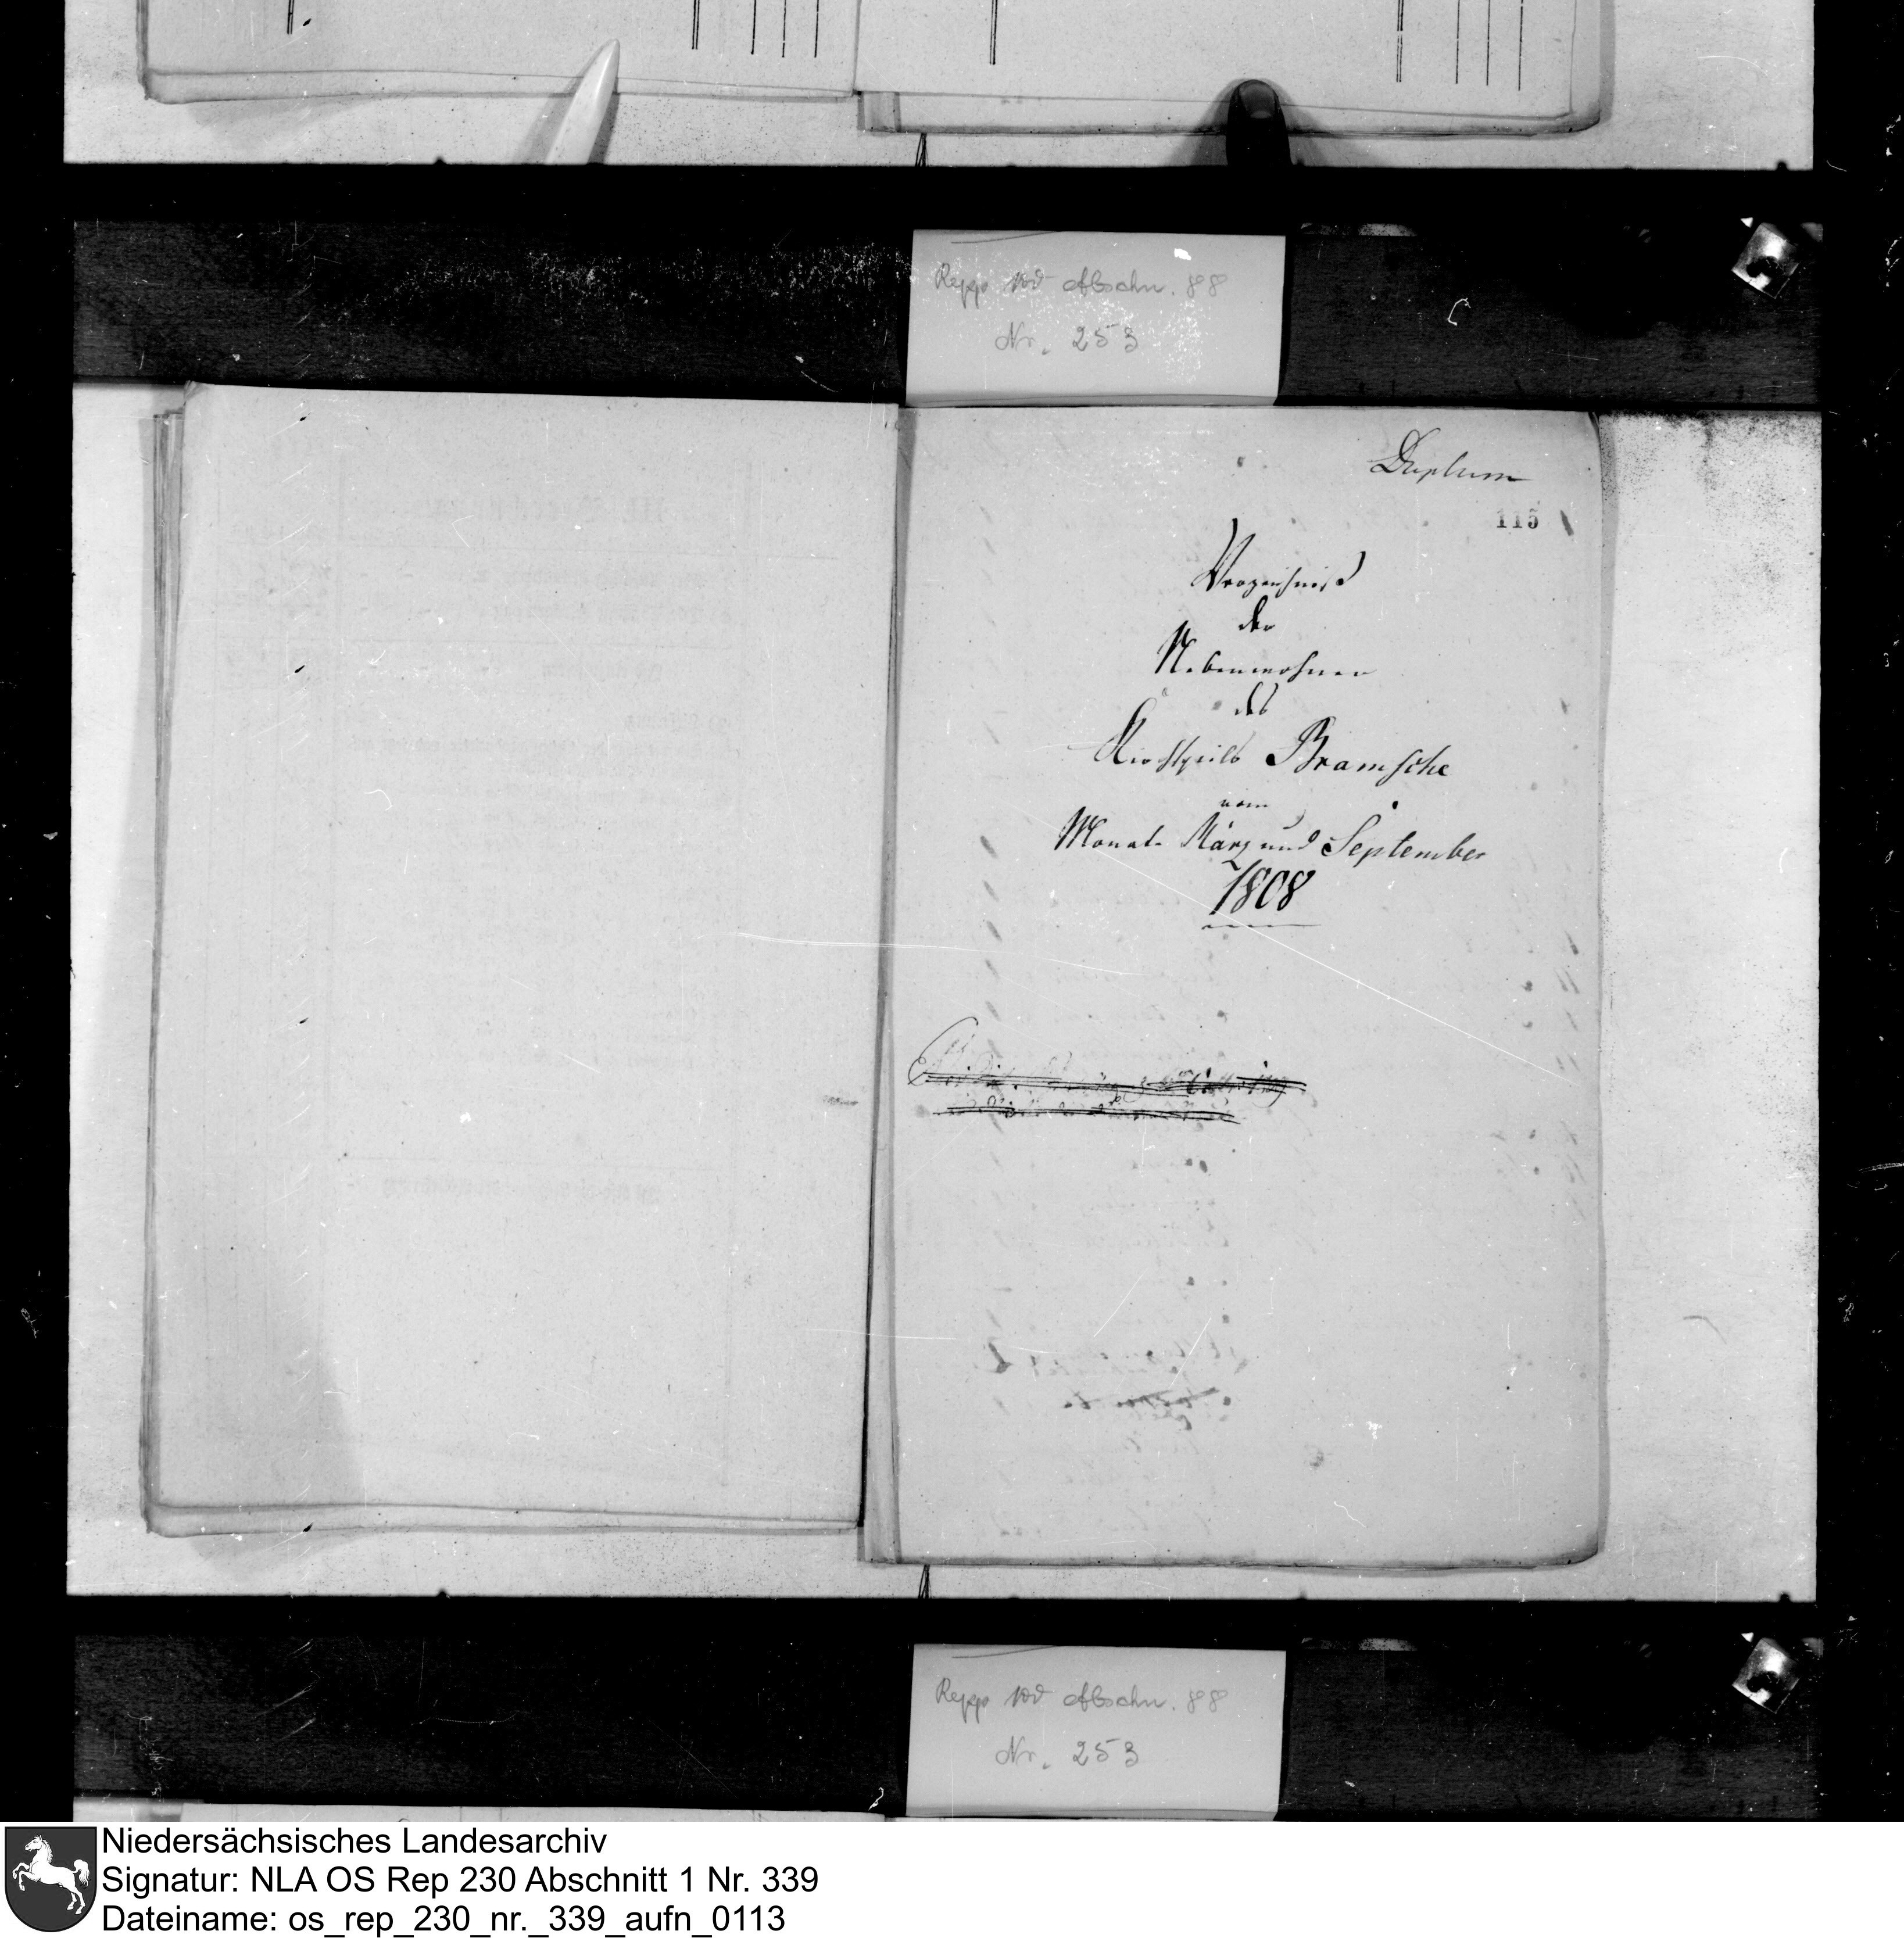 Repp 100 Abschn. 88
Nr. 253
Duplum
115
Verzeichniß
der
Nebenwohner
des
Kirchspiels Bramsche
vom
Monat März und September
1808
Repp 100 Abschn. 88
Nr. 253
Niedersächsisches Landesarchiv
Signatur: NLA OS Rep 230 Abschnitt 1 Nr. 339
Dateiname: os_rep_230_nr._339_aufn_0113